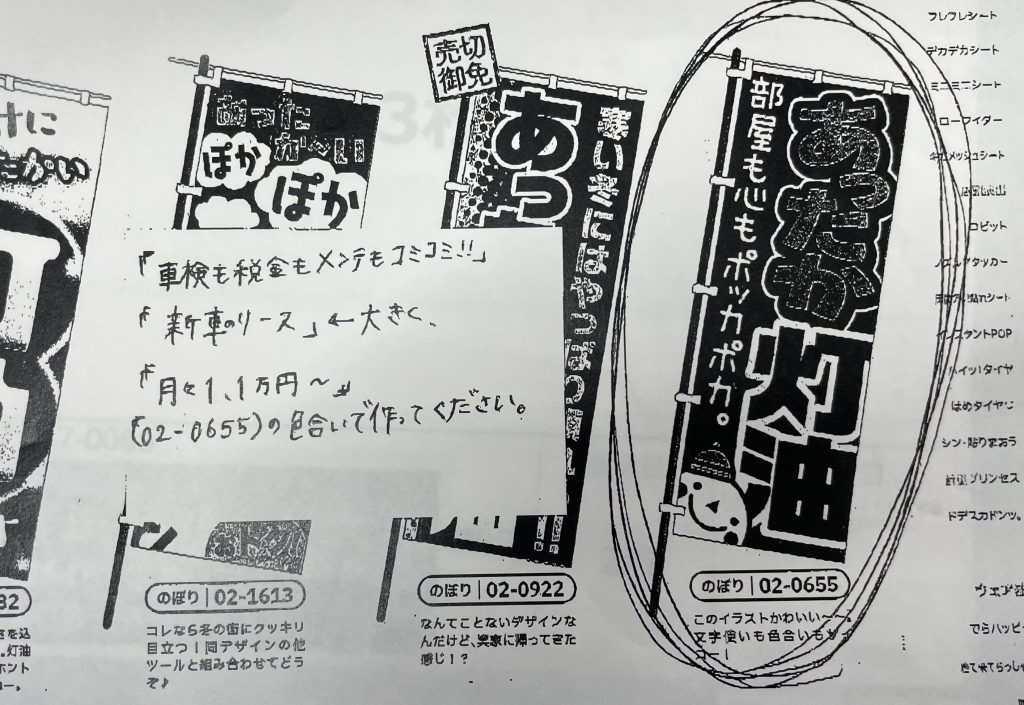 けに
かい
82
さを込
。灯油
ホント
ー。
あった
か〜い
ぽか
ぽか
「車検も税金もメンテもコミコミ!!」
「新車のリース」←大きく、
「月々1.1万円〜」
(02-0655)の色合いで作ってください。
のぼり|02-1613
コレなら冬の街にクッキリ
目立つ!同デザインの他
ツールと組み合わせてどう
ぞ♪
売切
御免
あっ
寒い冬にはやっぱり
!!
のぼり|02-0922
なんてことないデザインな
んだけど、実家に帰ってきた
感じ!?
部屋も心もポッカポカ。
あったか灯油
のぼり|02-0655
このイラストかわいい〜。
文字使いも色合いも
ー!
フレフレシート
デカデカシート
ミニミニシート
ローワイダー
メッシュシート
ロビット
アタッカー
シート
インスタントPOP
ハイッ!タイヤ
はめタイヤじ
シン・貼りまおう
プリンセス
ドデスカドンッ。
ウェブ
でらハッピー